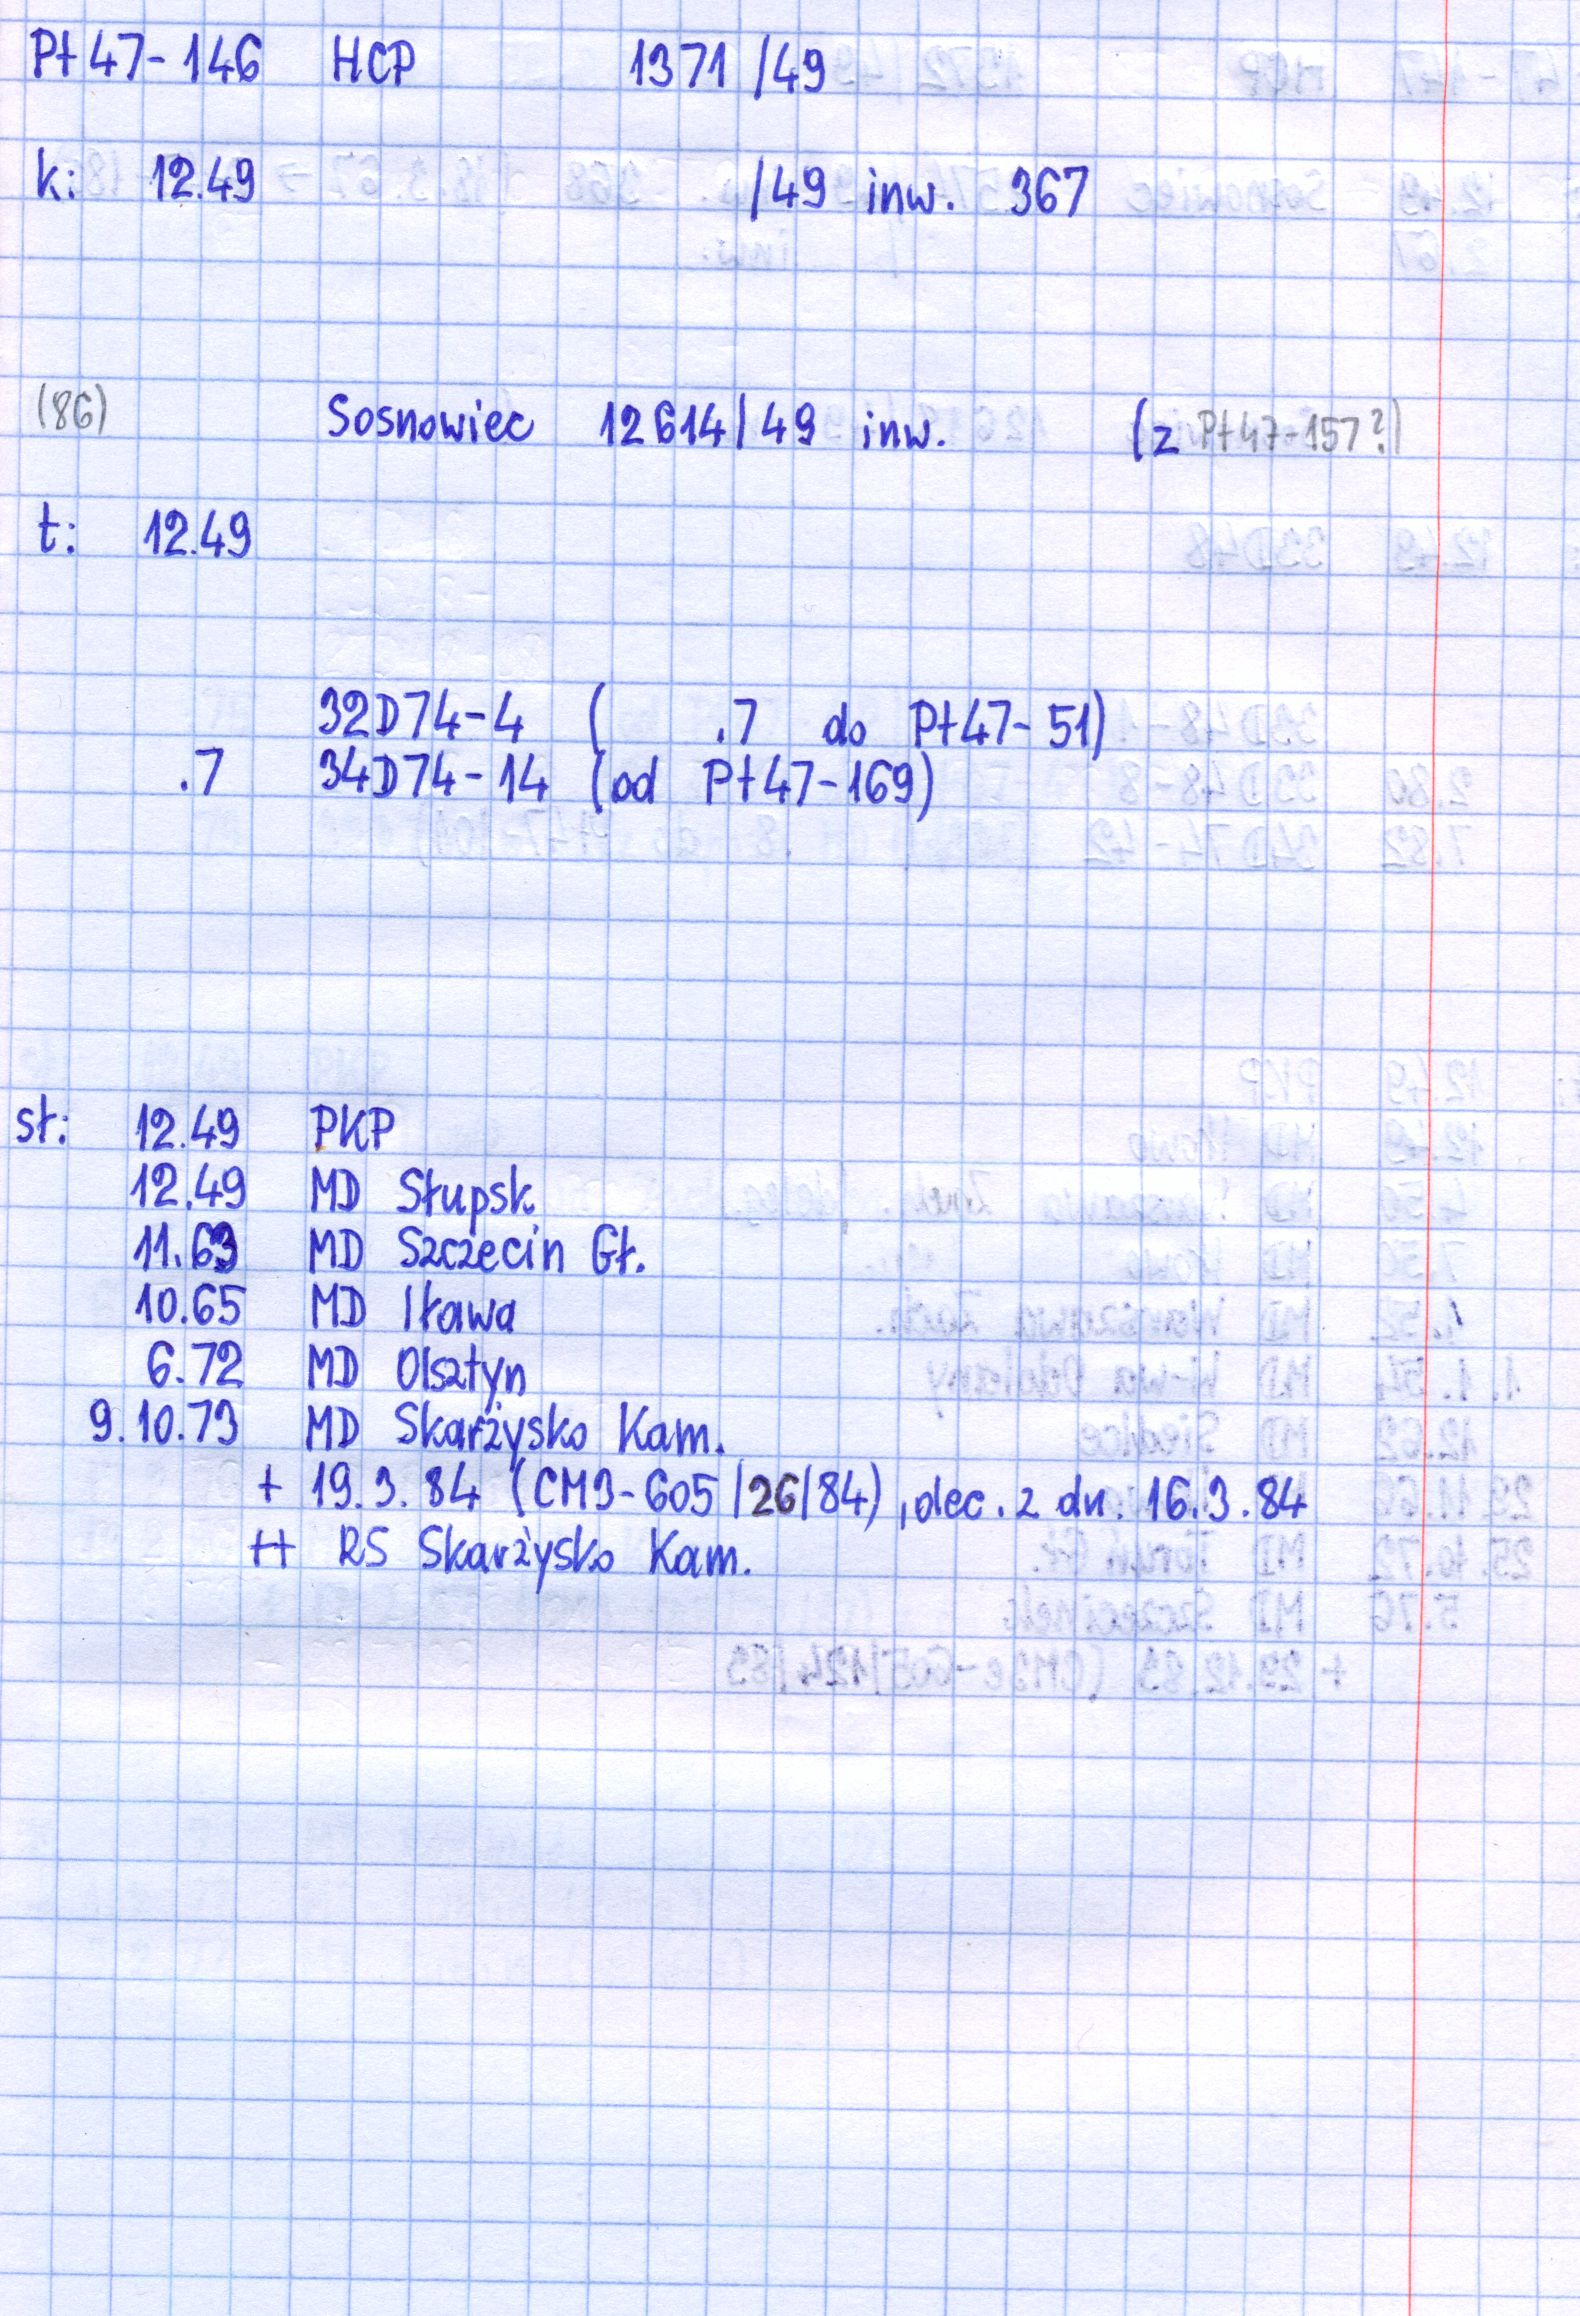 Pt47-146 HCP 1371/49
k: 12.49 /49 inw. 367
(86) Sosnowiec 12614/49 inw. (z Pt47-157?)
t: 12.49
32D74-4 ( .7 do Pt47-51)
.7 34D74-14 (od Pt47-169)
sł: 12.49 PKP
12.49 MD Słupsk
11.63 MD Szczecin Gł.
10.65 MD Iława
6.72 MD Olsztyn
9.10.73 MD Skarżysko Kam.
+ 19.3.84 (CM3-605/26/84), dec. z dn. 16.3.84
++ RS Skarżysko Kam.